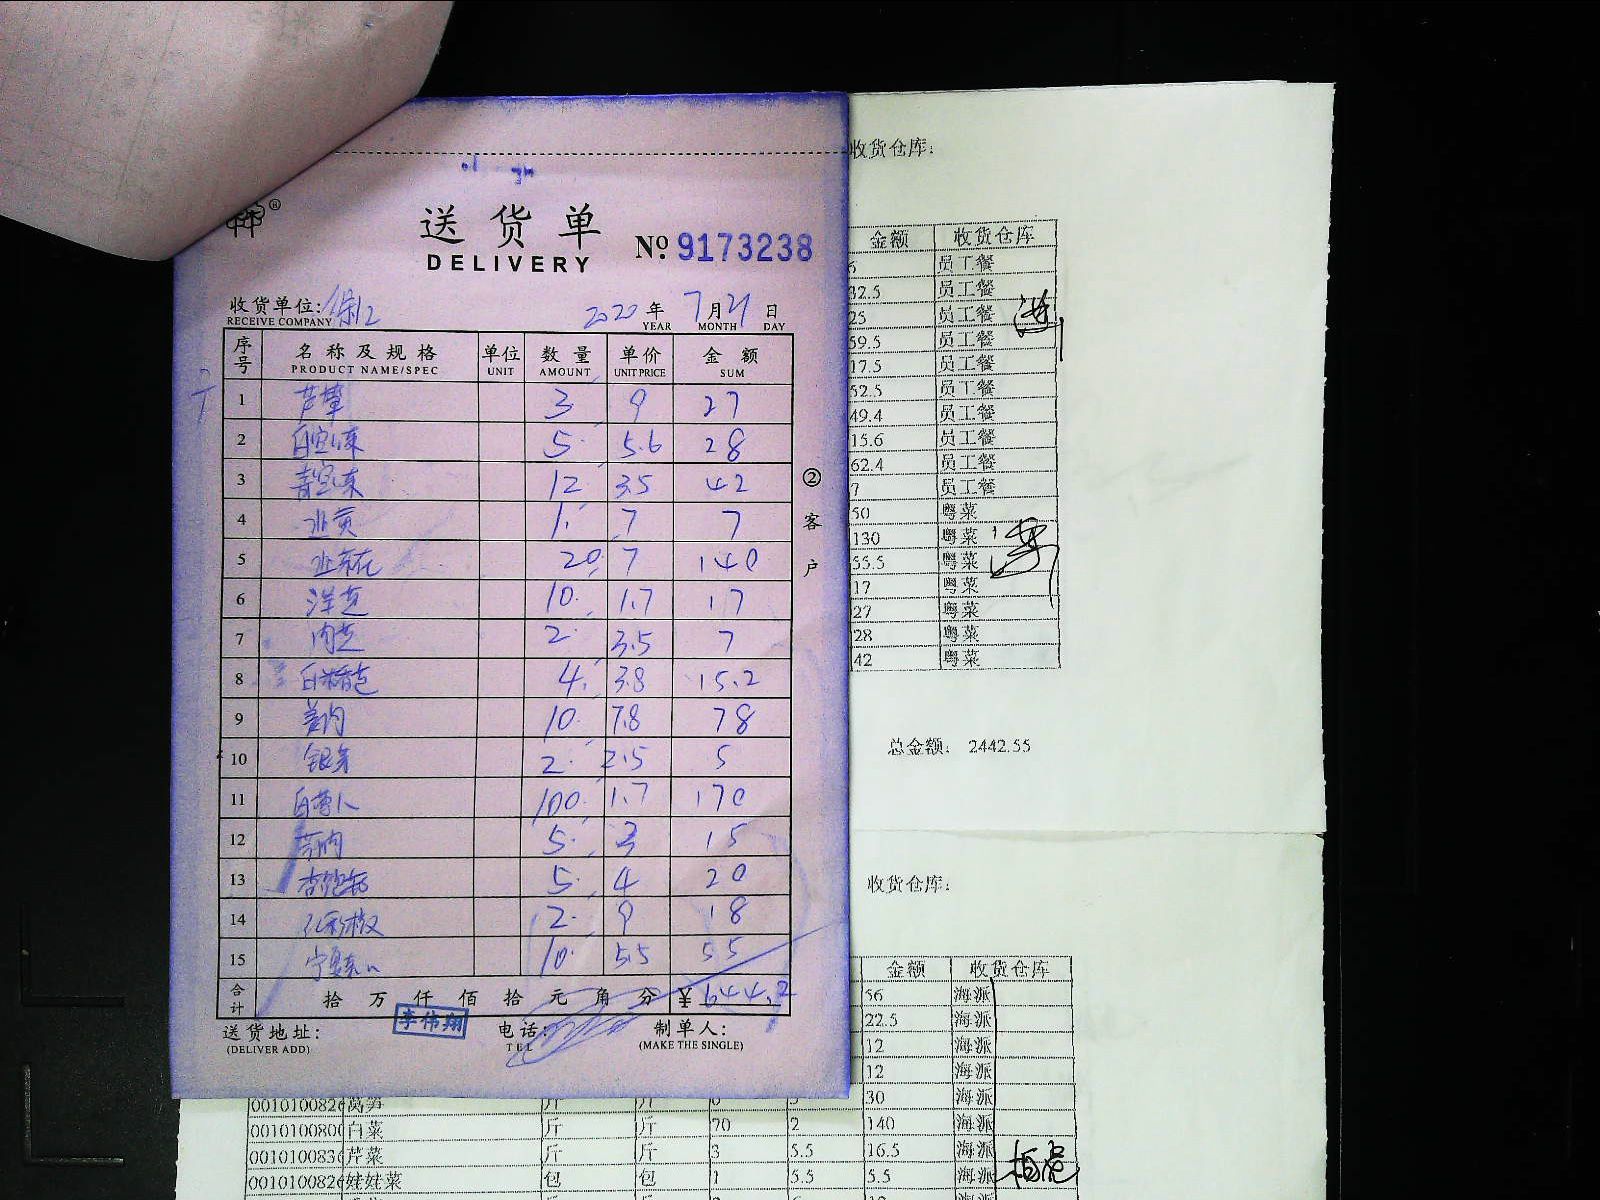 送货单
DELIVERY
№ 9173238
收货单位:
RECEIVE COMPANY
2020 年 7 月 21 日
YEAR MONTH DAY
序号 名称及规格 单位 数量 单价 金额
PRODUCT NAME/SPEC UNIT AMOUNT UNIT PRICE SUM
1 芦笋 3 9 27
2 5 5.6 28
3 12 3.5 42
4 1 7 7
5 20 7 140
6 洋芝 10 1.7 17
7 肉芝 2 3.5 7
8 4 3.8 15.2
9 姜肉 10 7.8 78
10 银芽 2 2.5 5
11 白萝卜 100 1.7 170
12 5 3 15
13 杏鲍菇 5 4 20
14 红彩椒 2 9 18
15 10 5.5 55
合计 拾万仟佰拾元角分 ¥ 644.2
李伟翔
送货地址:
(DELIVER ADD)
电话:
TEL
制单人:
(MAKE THE SINGLE)
②客户
收货仓库:
金额 收货仓库
员工餐
32.5 员工餐
25 员工餐
59.5 员工餐
17.5 员工餐
52.5 员工餐
49.4 员工餐
15.6 员工餐
62.4 员工餐
7 员工餐
50 粤菜
130 粤菜
55.5 粤菜
17 粤菜
27 粤菜
28 粤菜
42 粤菜
总金额: 2442.55
收货仓库:
金额 收货仓库
56 海派
22.5 海派
12 海派
12 海派
30 海派
莴笋 斤 斤
白菜 斤 斤 70 2 140 海派
芹菜 斤 斤 3 5.5 16.5 海派
娃娃菜 包 包 1 5.5 5.5 海派